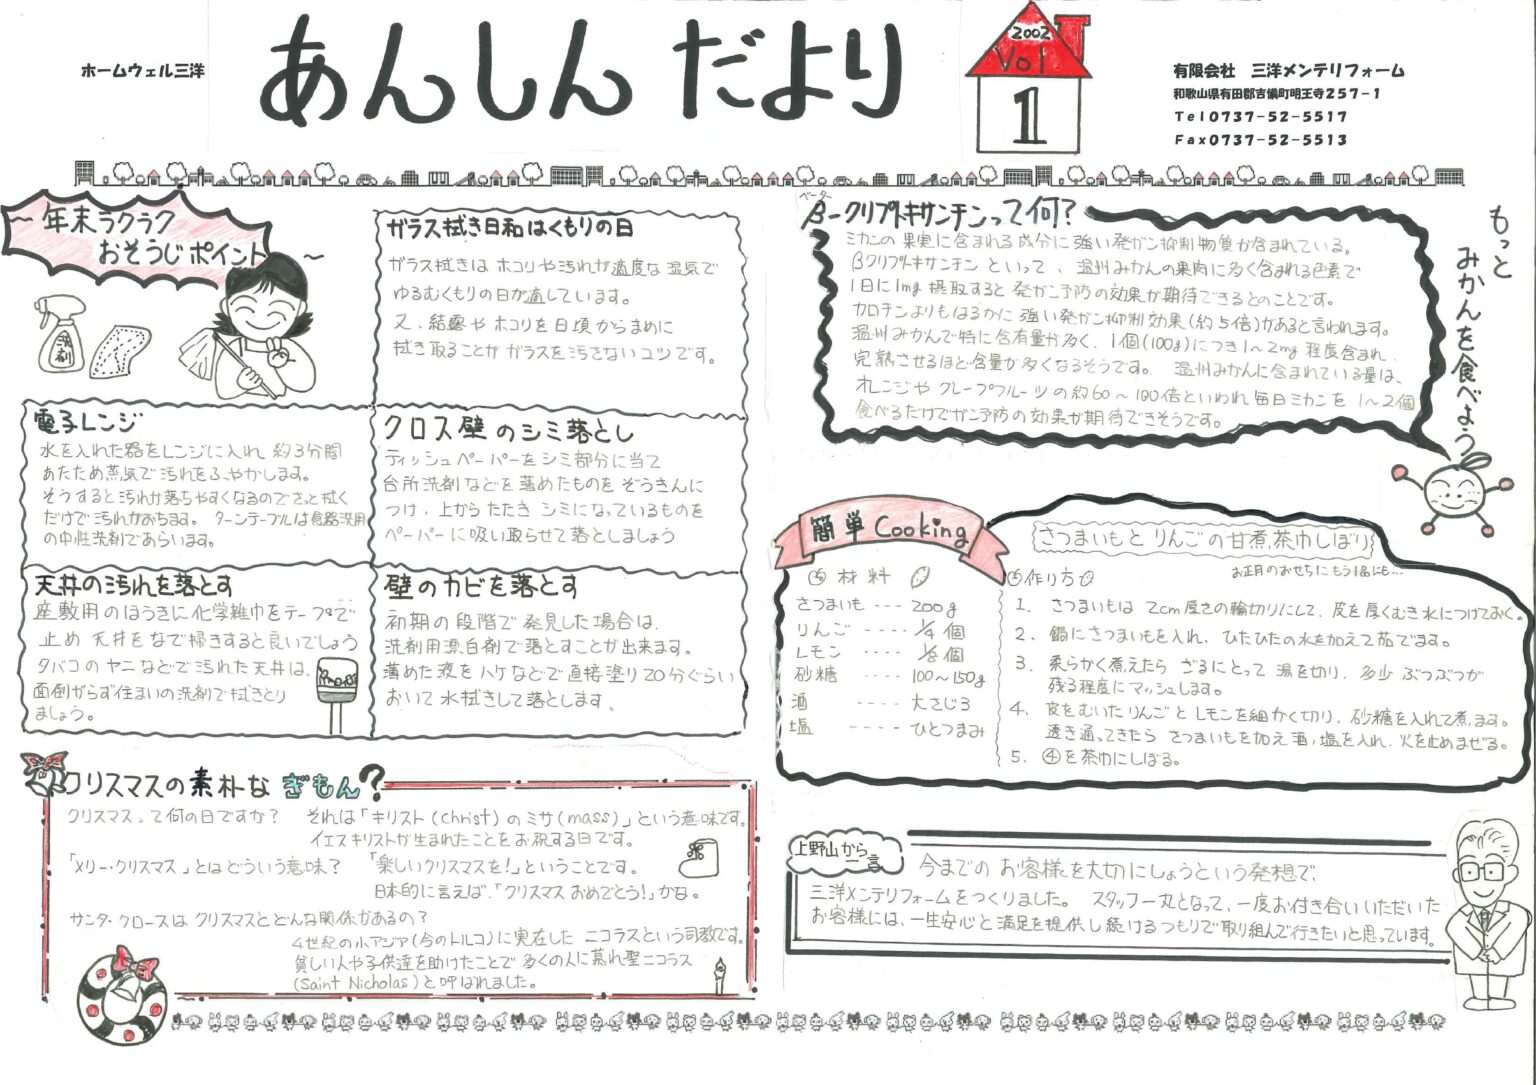 ホームウェル三洋
あんしん だより
2002
Vol
1
有限会社 三洋メンテリフォーム
和歌山県有田郡吉備町明王寺257-1
Tel0737-52-5517
Fax0737-52-5513
～年末ラクラク
おそうじポイント～
洗剤
ガラス拭き日和はくもりの日
ガラス拭きはホコリや汚れが適度な湿気で
ゆるむくもりの日が適しています。
又、結露やホコリを日頃からまめに
拭き取ることがガラスを汚さないコツです。
電子レンジ
水を入れた器をレンジに入れ 約3分間
あたため蒸気で汚れをふやかします。
そうすると汚れが落ちやすくなるのでさっと拭く
だけで汚れがおちます。 ターンテーブルは食器洗用
の中性洗剤であらいます。
クロス壁のシミ落とし
ティッシュペーパーをシミ部分に当て
台所洗剤などを薄めたものを ぞうきんに
つけ、上からたたき シミになっているものを
ペーパーに吸い取らせて落としましょう
天井の汚れを落とす
座敷用のほうきに化学雑巾をテープで
止め 天井をなで掃きすると良いでしょう
タバコのヤニなどで汚れた天井は、
面倒がらず住まいの洗剤で拭きとり
ましょう。
壁のカビを落とす
初期の段階で発見した場合は、
洗剤用漂白剤で落とすことが出来ます。
薄めた液をハケなどで直接塗り20分ぐらい
おいて水拭きして落とします。
クリスマスの素朴なぎもん?
クリスマスって何の日ですか? それは「キリスト(christ)のミサ(mass)」という意味です。
イエスキリストが生まれたことをお祝する日です。
「メリー・クリスマス」とはどういう意味? 「楽しいクリスマスを!」ということです。
日本的に言えば、「クリスマスおめでとう!」かな。
サンタ・クロースはクリスマスとどんな関係があるの?
4世紀の小アジア(今のトルコ)に実在した ニコラスという司教です。
貧しい人や子供達を助けたことで 多くの人に慕れ聖ニコラス
(Saint Nicholas)と呼ばれました。
ベータ
β-クリプトキサンチンって何?
ミカンの果実に含まれる成分に強い発ガン抑制物質が含まれている。
βクリプトキサンチンといって、温州みかんの果肉に多く含まれる色素で
1日に1mg摂取すると発ガン予防の効果が期待できるとのことです。
カロチンよりもはるかに強い発ガン抑制効果(約5倍)があると言われます。
温州みかんで特に含有量が多く、1個(100g)につき1～2mg程度含まれ、
完熟させるほど含量が多くなるそうです。 温州みかんに含まれている量は、
オレンジやグレープフルーツの約60～100倍といわれ毎日ミカンを1～2個
食べるだけでガン予防の効果が期待できそうです。
もっと
みかんを食べよう
簡単Cooking
さつまいもとりんごの甘煮茶巾しぼり
お正月のおせちにもう1品にも…
材料
さつまいも --- 200g
りんご ---- 1/4個
レモン ---- 1/8個
砂糖 ---- 100～150g
酒 ---- 大さじ3
塩 ---- ひとつまみ
作り方
1、さつまいもは2cm厚さの輪切りにして、皮を厚くむき水につけておく。
2、鍋にさつまいもを入れ、ひたひたの水を加えて茹でます。
3、柔らかく煮えたら ざるにとって 湯を切り、多少 ぶつぶつが
残る程度にマッシュします。
4、皮をむいたりんごとレモンを細かく切り、砂糖を入れて煮ます。
透き通ってきたら さつまいもを加え酒、塩を入れ、火を止めまぜる。
5、④を茶巾にしぼる。
上野山から
一言
今までの お客様を大切にしようという発想で、
三洋メンテリフォームをつくりました。 スタッフ一丸となって、一度お付き合いいただいた
お客様には、一生安心と満足を提供し続けるつもりで取り組んで行きたいと思っています。